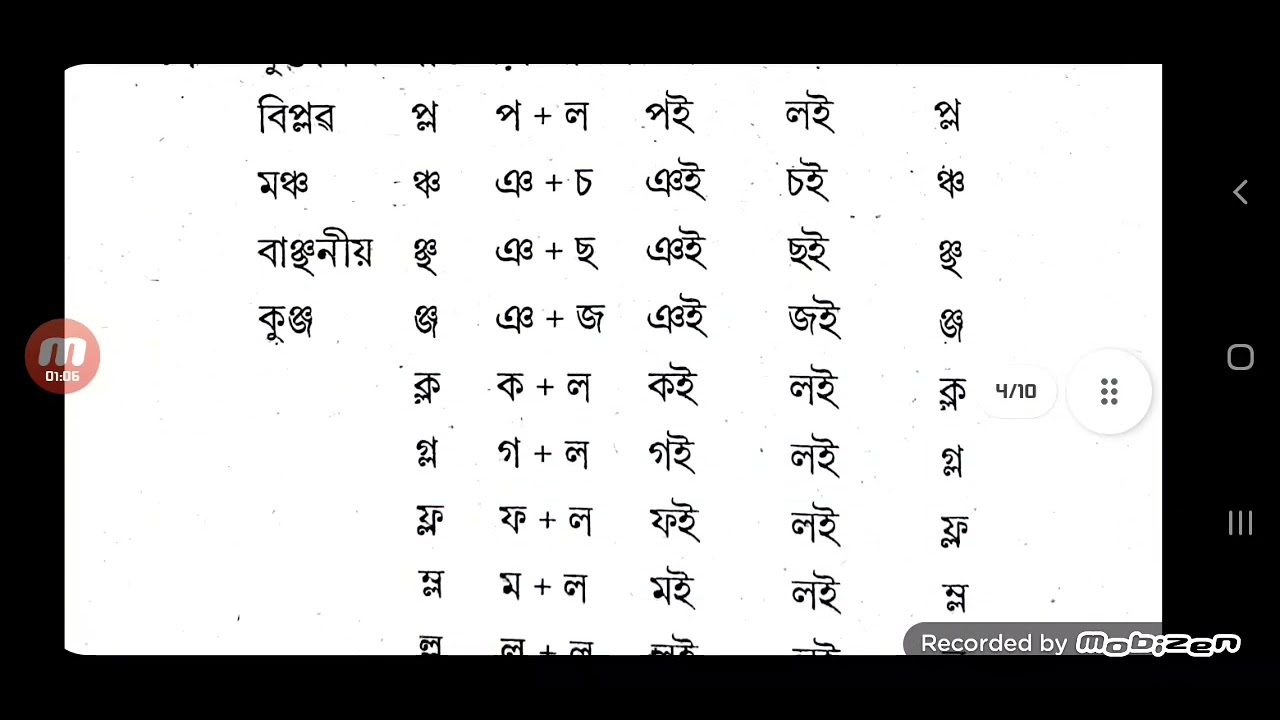 বিপ্লৱ প্ল প + ল পই লই প্ল
মঞ্চ ঞ্চ ঞ + চ ঞই চই ঞ্চ
বাঞ্ছনীয় ঞ্ছ ঞ + ছ ঞই ছই ঞ্ছ
কুঞ্জ ঞ্জ ঞ + জ ঞই জই ঞ্জ
01:06
ক্ল ক + ল কই লই ক্ল
4/10
গ্ল গ + ল গই লই গ্ল
ফ্ল ফ + ল ফই লই ফ্ল
ম্ল ম + ল মই লই ম্ল
ল্ল ল + ল লই লই
Recorded by Mobizen